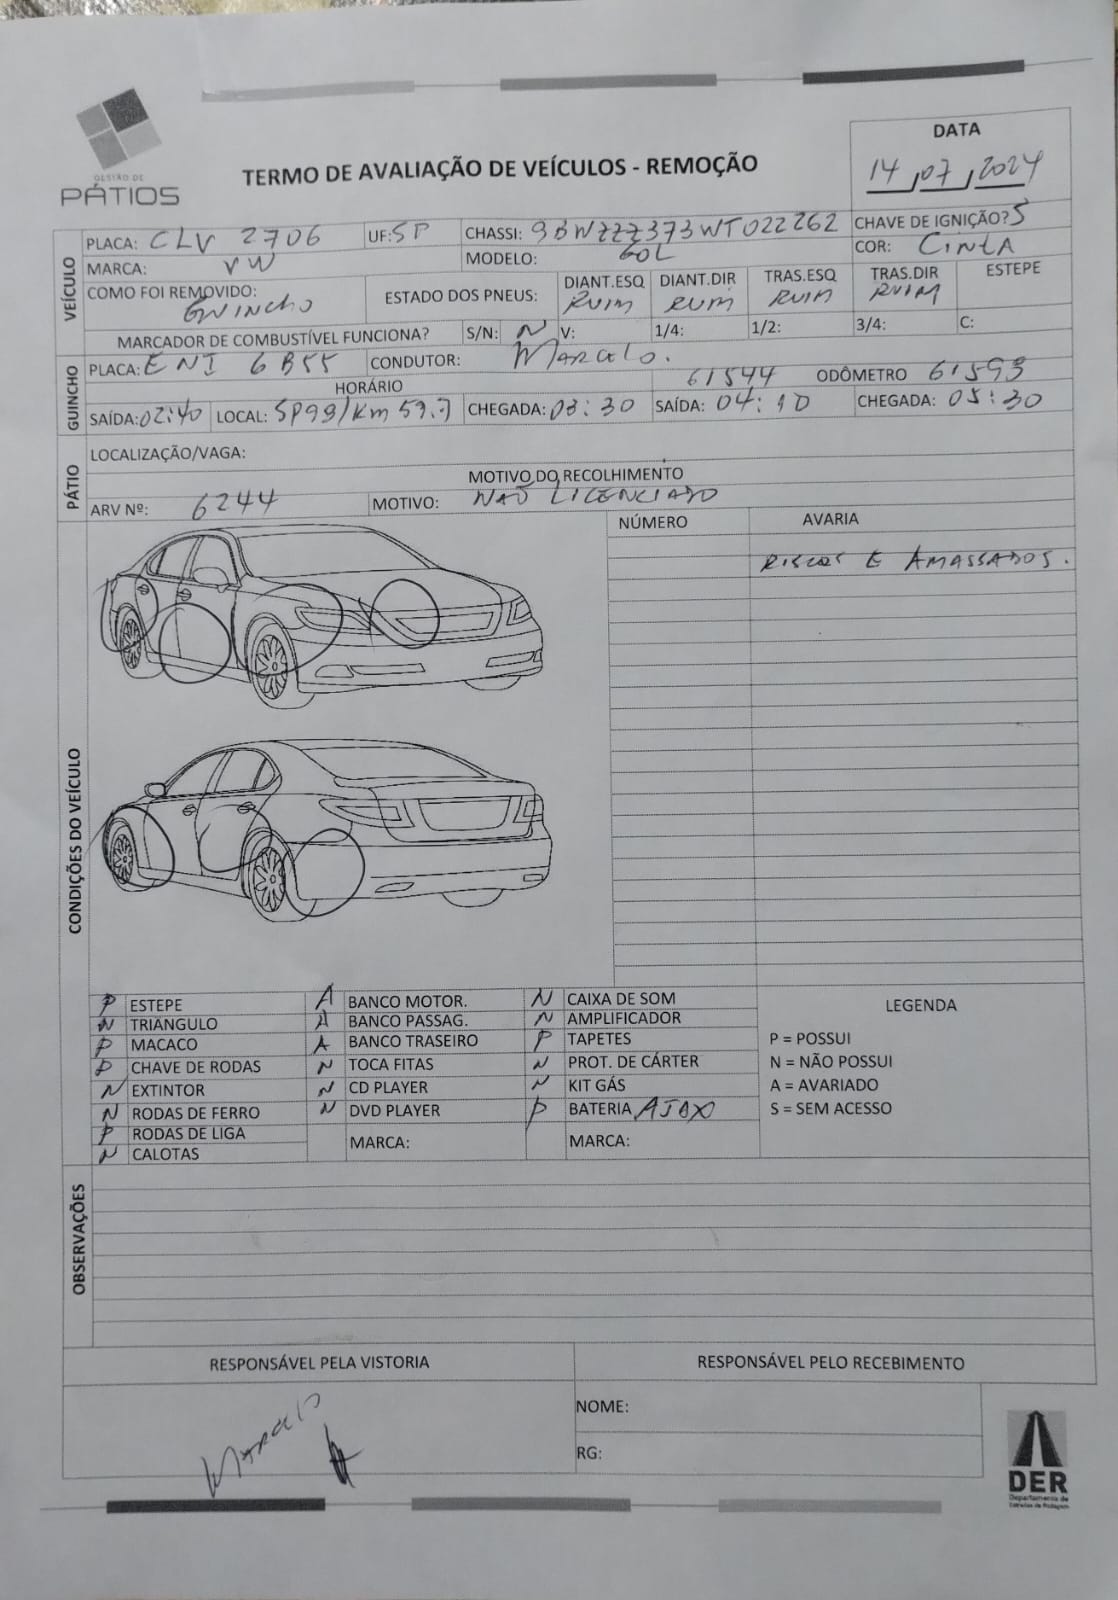 GESTÃO DE
PÁTIOS
TERMO DE AVALIAÇÃO DE VEÍCULOS - REMOÇÃO
DATA
14, 07, 2024
VEÍCULO
PLACA: CLV 2706 UF: SP CHASSI: 9BWZZZ373WT022262 CHAVE DE IGNIÇÃO? S
MARCA: VW MODELO: GOL COR: CINZA
COMO FOI REMOVIDO: GUINCHO ESTADO DOS PNEUS: DIANT.ESQ RUIM DIANT.DIR RUIM TRAS.ESQ RUIM TRAS.DIR RUIM ESTEPE
MARCADOR DE COMBUSTÍVEL FUNCIONA? S/N: N V: 1/4: 1/2: 3/4: C:
GUINCHO
PLACA: ENI 6B55 CONDUTOR: MARCELO.
HORÁRIO 61544 ODÔMETRO 61593
SAÍDA: 02:40 LOCAL: SP99/KM 59.7 CHEGADA: 03:30 SAÍDA: 04:10 CHEGADA: 05:30
PÁTIO
LOCALIZAÇÃO/VAGA:
MOTIVO DO RECOLHIMENTO
ARV Nº: 6244 MOTIVO: NÃO LICENCIADO
CONDIÇÕES DO VEÍCULO
NÚMERO AVARIA
RISCOS E AMASSADOS.
P ESTEPE A BANCO MOTOR. N CAIXA DE SOM LEGENDA
N TRIÂNGULO A BANCO PASSAG. N AMPLIFICADOR
P MACACO A BANCO TRASEIRO P TAPETES P = POSSUI
P CHAVE DE RODAS N TOCA FITAS N PROT. DE CÁRTER N = NÃO POSSUI
N EXTINTOR N CD PLAYER N KIT GÁS A = AVARIADO
N RODAS DE FERRO N DVD PLAYER P BATERIA AJAX S = SEM ACESSO
P RODAS DE LIGA MARCA: MARCA:
N CALOTAS
OBSERVAÇÕES
RESPONSÁVEL PELA VISTORIA RESPONSÁVEL PELO RECEBIMENTO
MARCELO
NOME:
RG:
DER
Departamento de
Estradas de Rodagem